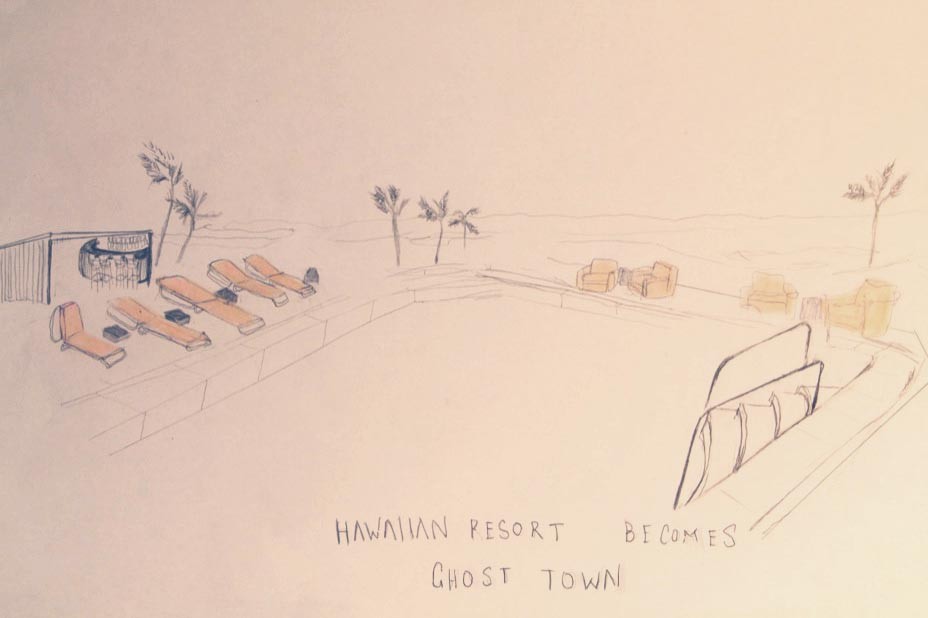 HAWAIIAN RESORT BECOMES
GHOST TOWN